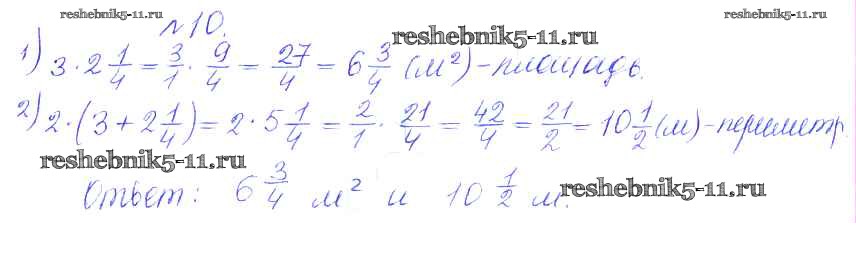 reshebnik5-11.ru
№10.
reshebnik5-11.ru
1) 3 · 2 1/4 = 3/1 · 9/4 = 27/4 = 6 3/4 (м²) - площадь.
2) 2 · (3 + 2 1/4) = 2 · 5 1/4 = 2/1 · 21/4 = 42/4 = 21/2 = 10 1/2 (м) - периметр.
reshebnik5-11.ru
Ответ: 6 3/4 м² и 10 1/2 м.
reshebnik5-11.ru